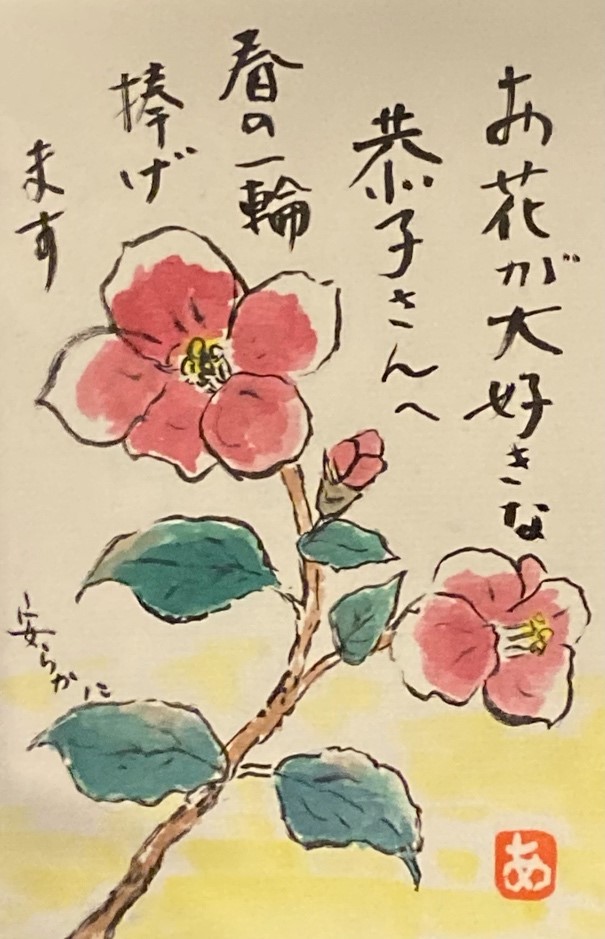 お花が大好きな
恭子さんへ
春の一輪
捧げ
ます
安らかに
あ